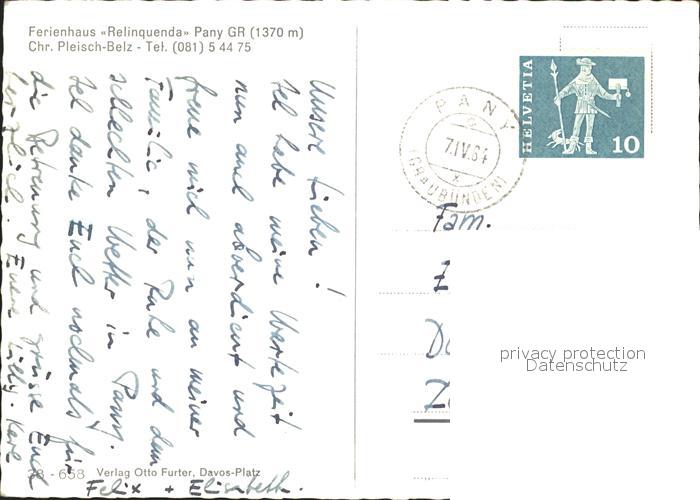 Ferienhaus «Relinquenda» Pany GR (1370 m)
Chr. Pleisch-Belz - Tel. (081) 5 44 75
Unsere Lieben!
Ich habe meine Wartezeit
nun auch abverdient und
freue mich nun an meiner
Familie, der Ruhe und dem
schlechten Wetter in Pany.
Ich danke Euch nochmals für
die Betreuung und grüsse Euch
herzlich. Euere
Felix + Elisabeth.
38 - 658 Verlag Otto Furter, Davos-Platz
PANY
7.IV.64
(GRAUBÜNDEN)
HELVETIA
10
Fam.
Z
D
Z
privacy protection
Datenschutz